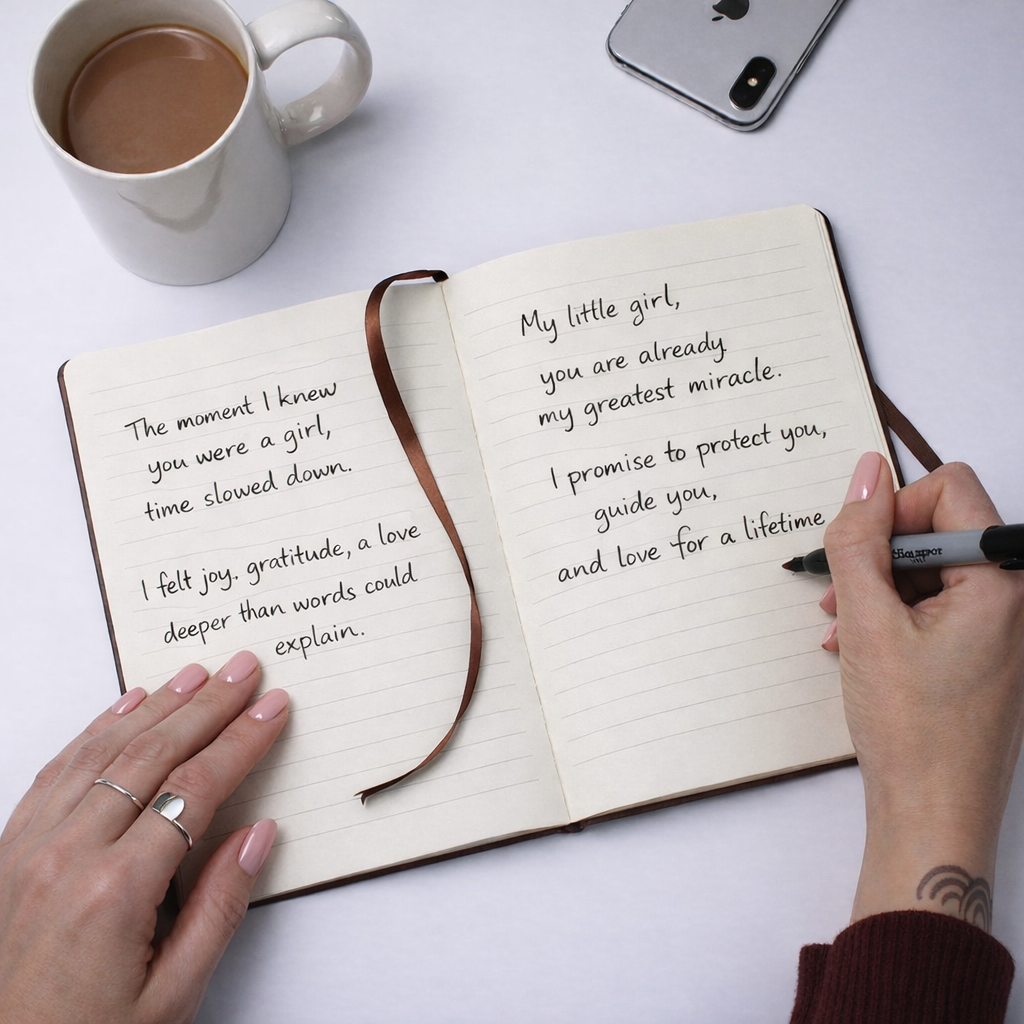 The moment I knew
you were a girl,
time slowed down.
I felt joy. gratitude, a love
deeper than words could
explain.
My little girl,
you are already
my greatest miracle.
I promise to protect you,
guide you,
and love for a lifetime